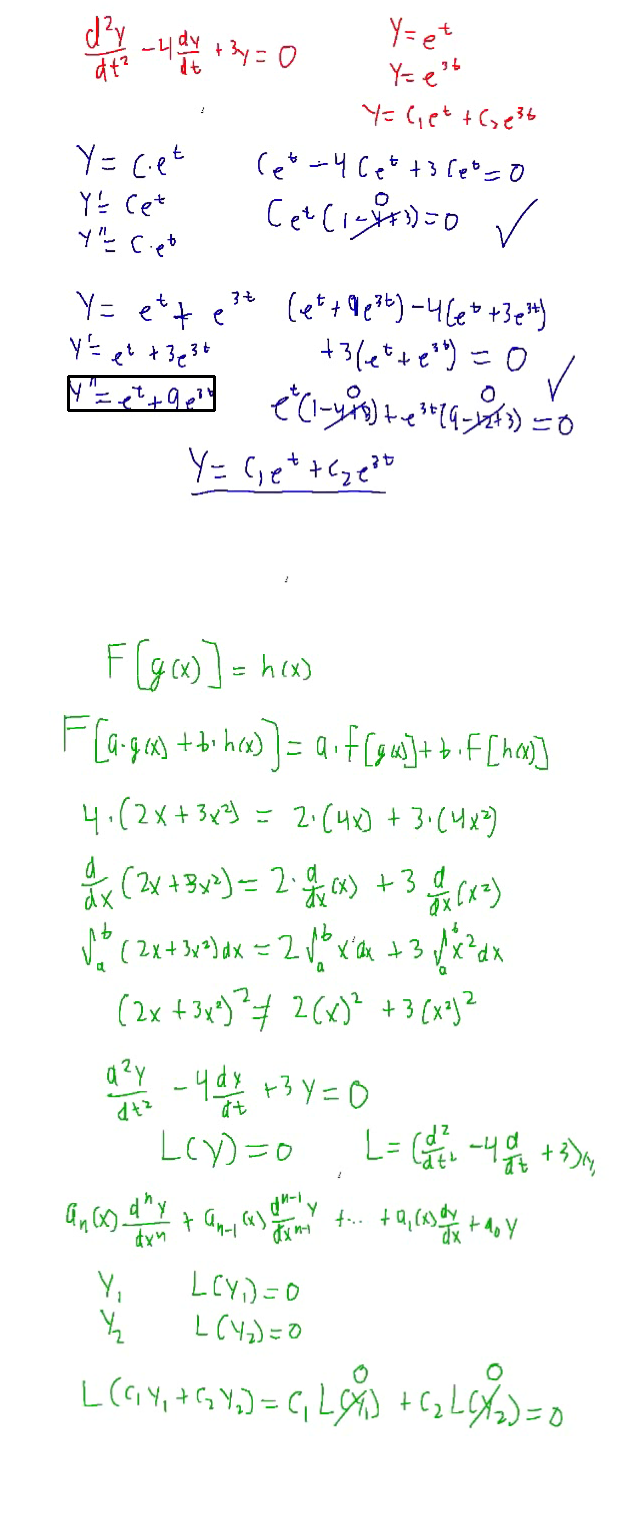 d²y/dt² - 4 dy/dt + 3y = 0
y = e^t
y = e^{3t}
y = C₁e^t + C₂e^{3t}
y = C·e^t
y' = Ce^t
y'' = C·e^t
Ce^t - 4Ce^t + 3Ce^t = 0
Ce^t(1-4+3) = 0 ✓
0
y = e^t + e^{3t}
y' = e^t + 3e^{3t}
y'' = e^t + 9e^{3t}
(e^t + 9e^{3t}) - 4(e^t + 3e^{3t})
+3(e^t + e^{3t}) = 0 ✓
0 0
e^t(1-4+3) + e^{3t}(9-12+3) = 0
y = C₁e^t + C₂e^{3t}
F[g(x)] = h(x)
F[a·g(x) + b·h(x)] = a·F[g(x)] + b·F[h(x)]
4·(2x + 3x²) = 2·(4x) + 3·(4x²)
d/dx (2x + 3x²) = 2·d/dx(x) + 3 d/dx(x²)
∫_a^b (2x + 3x²)dx = 2∫_a^b x dx + 3∫_a^b x²dx
(2x + 3x²)² ≠ 2(x)² + 3(x²)²
d²y/dt² - 4 dy/dt + 3y = 0
L(y) = 0 L = (d²/dt² - 4 d/dt + 3)y
a_n(x) d^n y/dx^n + a_{n-1}(x) d^{n-1}y/dx^{n-1} + ... + a₁(x) dy/dx + a₀y
y₁ L(y₁) = 0
y₂ L(y₂) = 0
0 0
L(c₁y₁ + c₂y₂) = c₁L(y₁) + c₂L(y₂) = 0